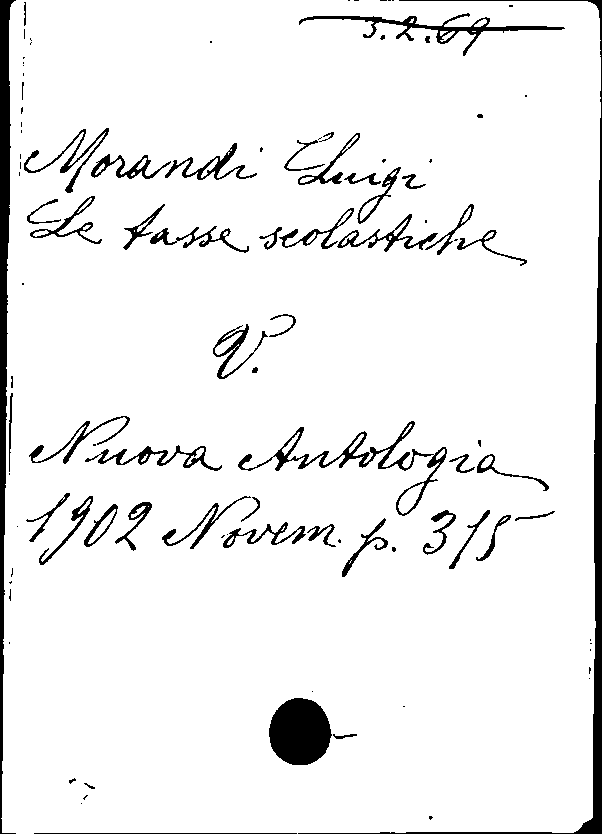 3.2.69
Morandi Luigi
Le tasse scolastiche
V.
Nuova Antologia
1902 Novem. p. 315